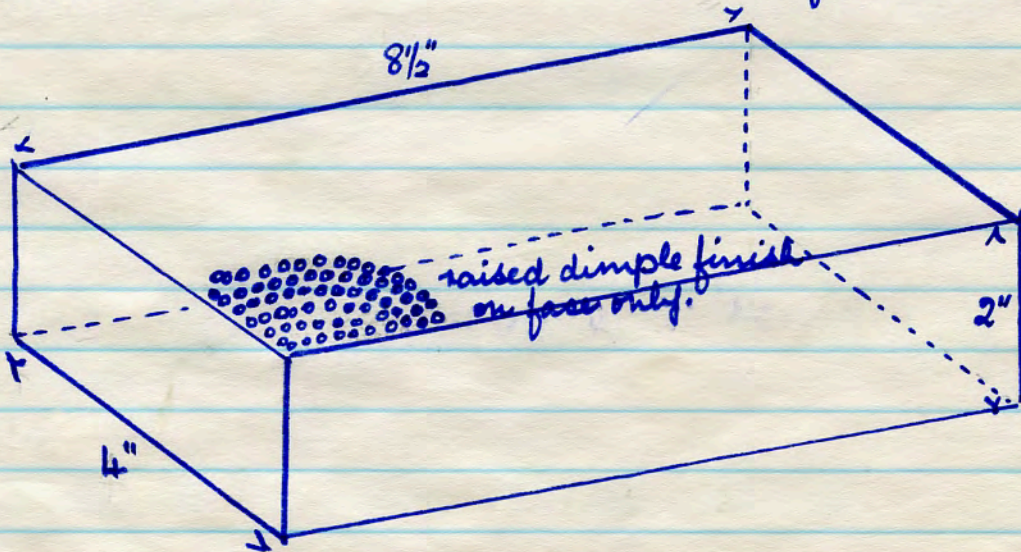 8½"
raised dimple finish
on face only.
2"
4"